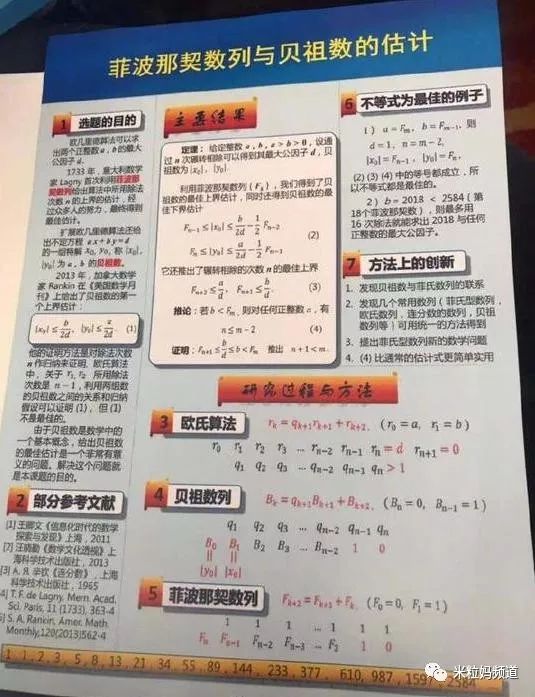 菲波那契数列与贝祖数的估计
1 选题的目的
欧几里德算法可以求
出两个正整数 a, b 的最大
公因子 d.
1733 年，意大利数学
家 Lagny 首次利用菲波那
契数列给出算法中所用除法
次数 n 的上界的估计，经
过众多人的努力，最终得到
最佳估计.
扩展欧几里德算法还给
出不定方程 ax + by = d
的一组特解 x₀, y₀, 称 |x₀|,
|y₀| 为 a, b 的贝祖数.
2013 年，加拿大数学
家 Rankin 在《美国数学月
刊》上给出了贝祖数的第一
个上界估计：
|x₀| ≤ b/2d, |y₀| ≤ a/2d. (1)
他的证明方法是对除法次数
n 作归纳来证明. 欧氏算法
中，关于 r₁, r₂ 所用除法
次数是 n − 1，利用两组数
的贝祖数之间的关系和归纳
假设可以证明 (1)，但 (1)
不是最佳的.
由于贝祖数是数学中的
一个基本概念，给出贝祖数
的最佳估计是一个非常有意
义的问题。解决这个问题就
是本课题的目的。
2 部分参考文献
[1] 王卿文《信息化时代的数学
探索与发现》上海，2011
汪晓勤《数学文化透视》上
海科学技术出版社，2013
[3] A. Я. 辛钦《连分数》，上海
科学技术出版社，1965
4] T. F. de Lagny, Mem. Acad.
Sci. Paris, 11 (1733), 363-4
S. A. Rankin, Amer. Math.
Monthly,120(2013)562-4
主要结果
定理：给定整数 a, b, a > b > 0，设通
过 n 次辗转相除可以得到其最大公因子 d，贝
祖数为 |x₀|, |y₀|.
利用菲波那契数列 {Fₖ}，我们得到了贝
祖数的最佳上界估计，同时还得到贝祖数的最
佳下界估计
Fₙ₋₁ ≤ |x₀| ≤ b/2d − 1/2 Fₙ₋₂
(2)
Fₙ ≤ |y₀| ≤ a/2d − 1/2 Fₙ₋₁
它还推出了辗转相除的次数 n 的最佳上界
Fₙ₊₂ ≤ a/d, Fₙ₊₁ ≤ b/d. (3)
推论：若 b < Fₘ，则对任何正整数 a，有
n ≤ m − 2 (4)
证明：Fₙ₊₁ ≤ b/d ≤ b < Fₘ 推出 n + 1 < m.
6 不等式为最佳的例子
1) a = Fₘ, b = Fₘ₋₁, 则
d = 1, n = m − 2,
|x₀| = Fₙ₋₁, |y₀| = Fₙ.
(2) (3) (4) 中的等号都成立，所
以不等式都是最佳的。
2) b = 2018 < 2584 (第
18个菲波那契数)，则最多用
16 次除法就能求出 2018 与任何
正整数的最大公因子。
7 方法上的创新
1. 发现贝祖数与菲氏数列的联系
2. 发现几个常用数列（菲氏型数列，
欧氏数列，连分数的数列，贝祖
数列等）可用统一的方法得到
3. 提出菲氏型数列新的数学问题
4. (4) 比通常的估计式更简单实用
研究过程与方法
3 欧氏算法 rₖ = qₖ₊₁rₖ₊₁ + rₖ₊₂, (r₀ = a, r₁ = b)
r₀ r₁ r₂ r₃ … rₙ₋₂ rₙ₋₁ rₙ = d rₙ₊₁ = 0
q₁ q₂ q₃ … qₙ₋₂ qₙ₋₁ qₙ > 1
4 贝祖数列 Bₖ = qₖ₊₁Bₖ₊₁ + Bₖ₊₂, (Bₙ = 0, Bₙ₋₁ = 1)
q₁ q₂ q₃ … qₙ₋₂ qₙ₋₁ qₙ
B₀ B₁ B₂ B₃ … Bₙ₋₂ 1 0
|| ||
|y₀| |x₀|
5 菲波那契数列 Fₖ₊₂ = Fₖ₊₁ + Fₖ, (F₀ = 0, F₁ = 1)
1 1 1 … 1 1 1
Fₙ Fₙ₋₁ Fₙ₋₂ Fₙ₋₃ … F₂ 1 0
1, 1, 2, 3, 5, 8, 13, 21, 34, 55, 89, 144, 233, 377, 610, 987, 1597, 2584
米粒妈频道